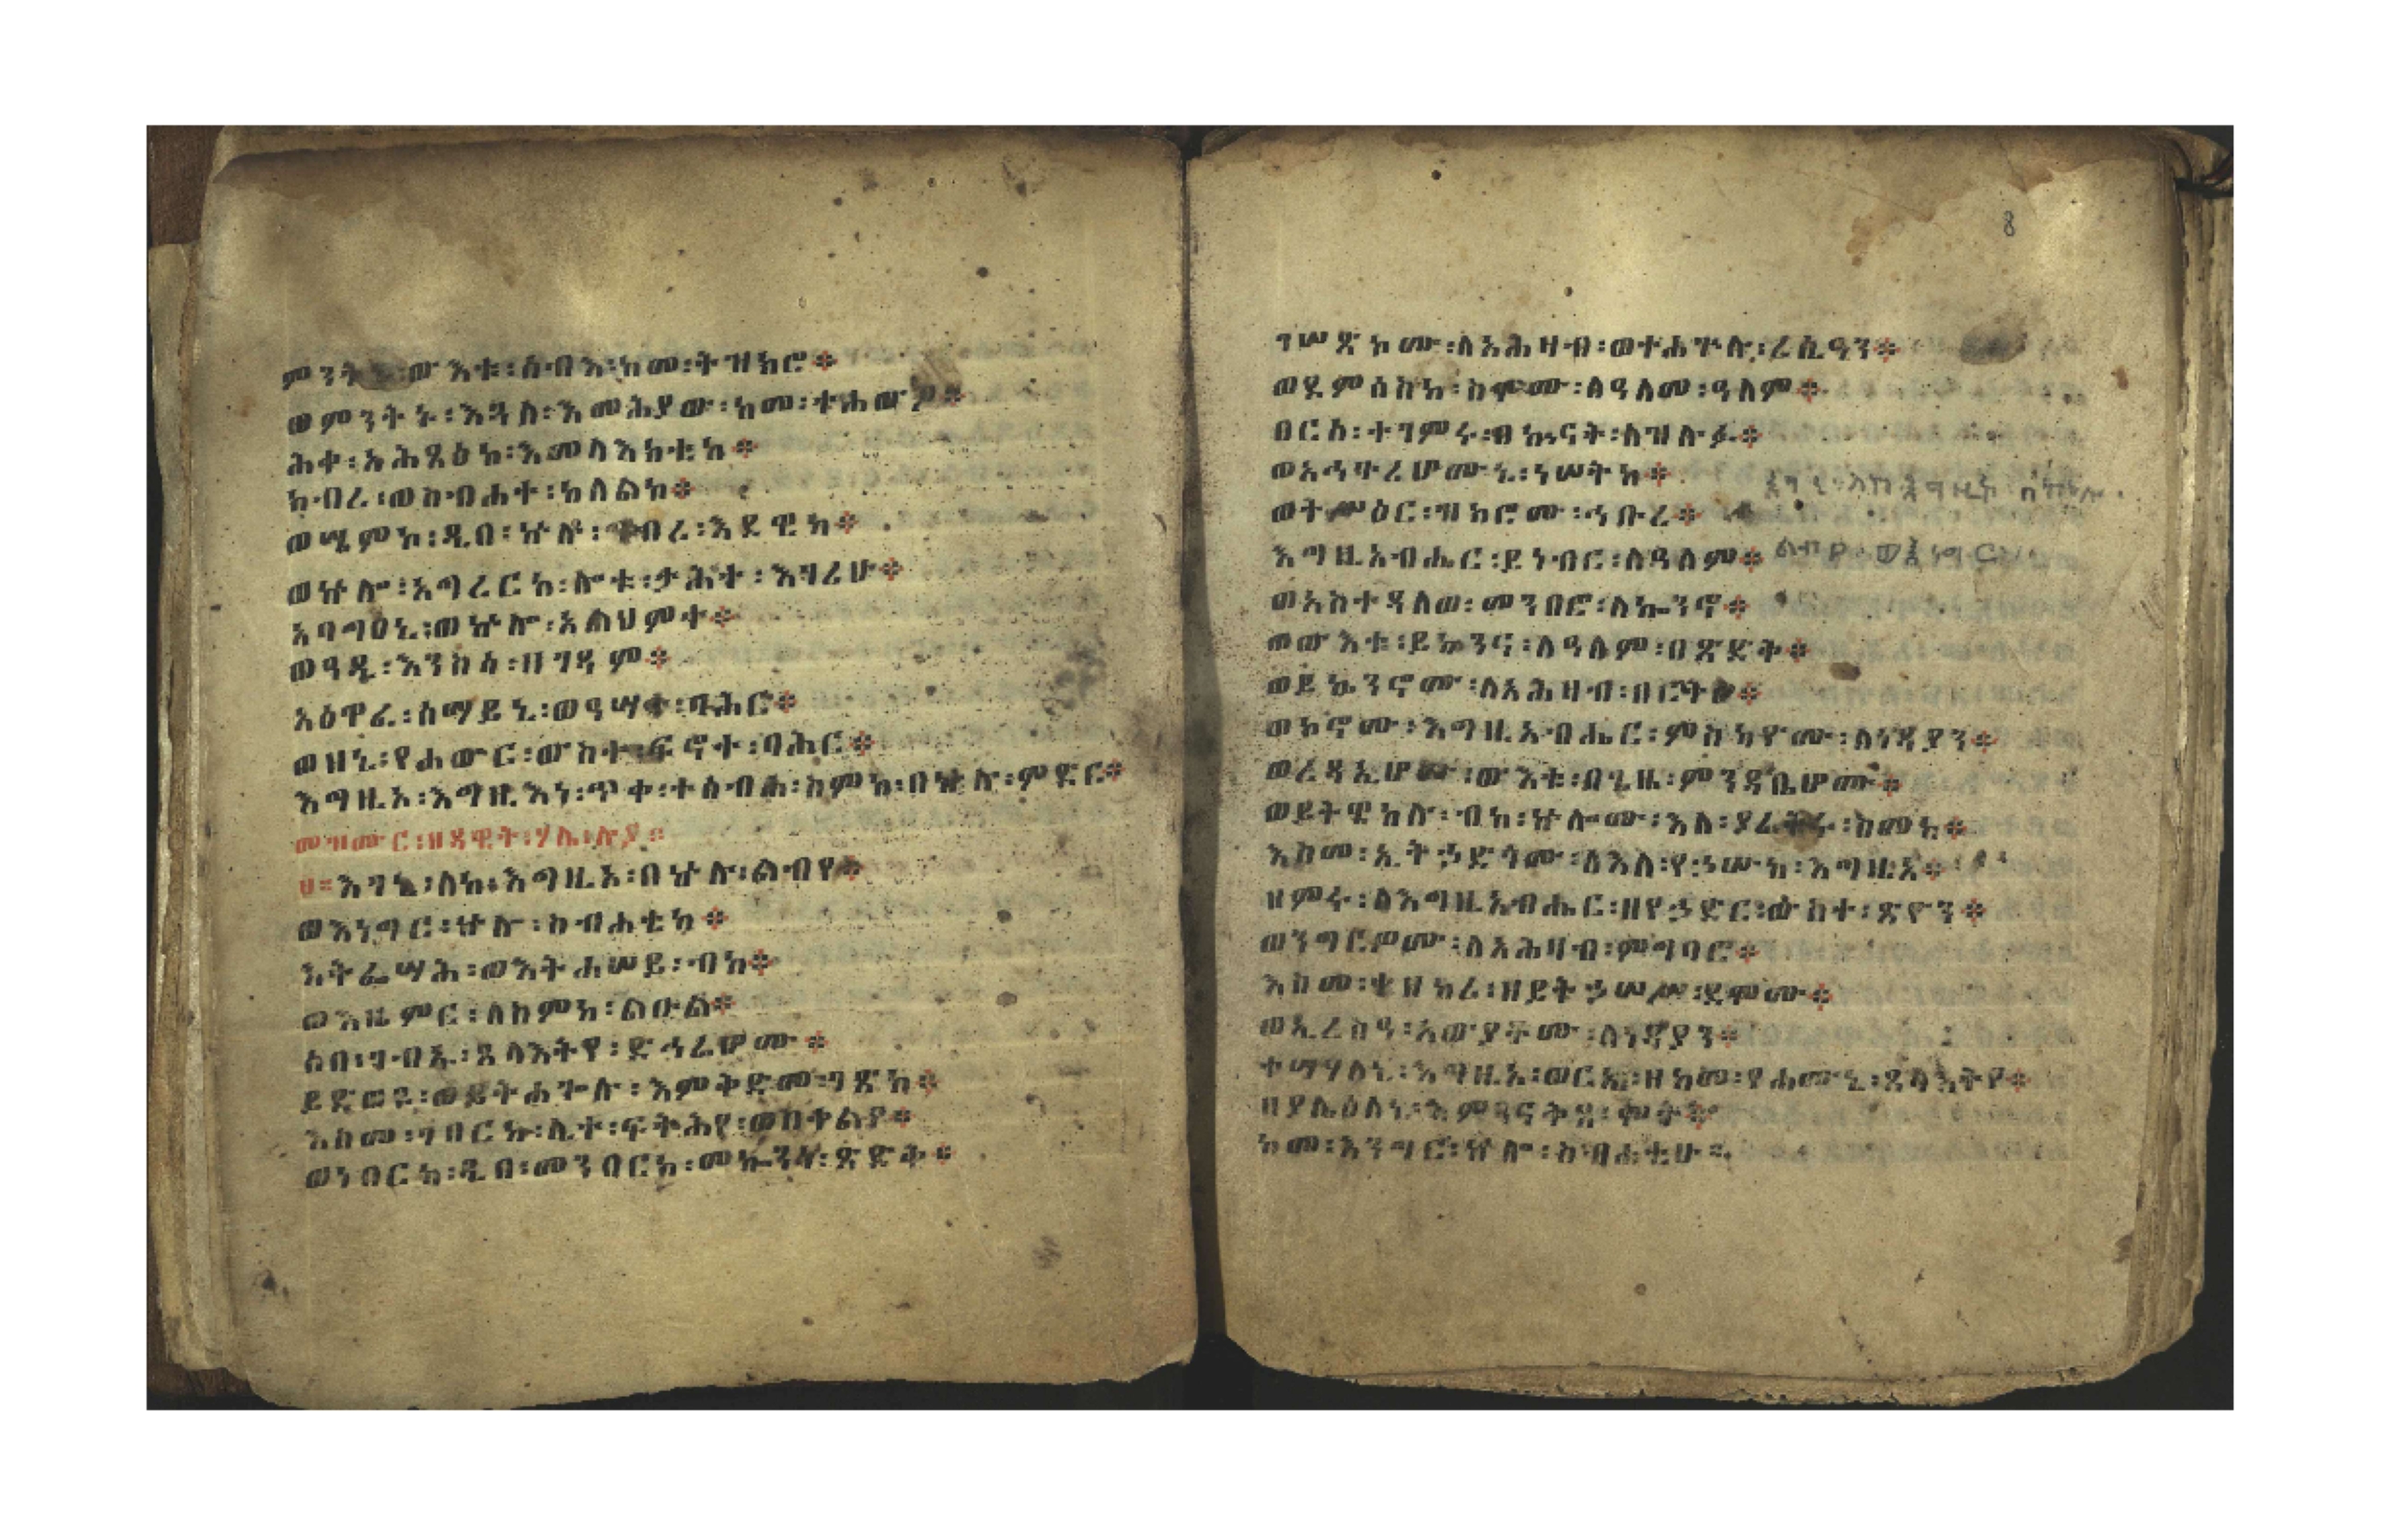 ምንት፡ ውእቱ፡ሰብእ፡ከመ፡ትዝክሮ፨
ወምንትኑ፡እጓለ፡እመሕያው፡ከመ፡ተሐውጾ፨
ሕቀ፡አሕጸፅኮ፡እመላእክቲከ፨
ክብረ፡ወስብሐተ፡ከለልኮ፨
ወሢምኮ፡ዲበ፡ኵሉ፡ግብረ፡እደዊከ፨
ወኵሎ፡አግረርከ፡ሎቱ፡ታሕተ፡እገሪሁ፨
አባግዐኒ፡ወኵሎ፡አልህምተ፨
ወዓዲ፡እንስሳ፡ዘገዳም፨
አዕዋፈ፡ሰማይኒ፡ወዓሣተ፡ባሕር፨
ወዘኒ፡የሐውር፡ውስተ፡ፍኖተ፡ባሕር፨
እግዚኦ፡እግዚእነ፡ጥቀ፡ተሰብሐ፡ስምከ፡በኵሉ፡ምድር፨
መዝሙር፡ዘዳዊት፡ሃሌ፡ሉያ።
፱።እገኒ፡ለከ፡እግዚኦ፡በኵሉ፡ልብየ፨
ወእነግር፡ኵሎ፡ስብሐቲከ፨
እትፌሣሕ፡ወእትሐሠይ፡ብከ፨
ወእዜምር፡ለስምከ፡ልዑል፨
ሶበ፡ገብኡ፡ጸላእትየ፡ድኅሬሆሙ፨
ይደወዩ፡ወይትሐጐሉ፡እምቅድመ፡ገጽከ፨
እስመ፡ገበርከ፡ሊተ፡ፍትሕየ፡ወበቀልየ፨
ወነበርከ፡ዲበ፡መንበርከ፡መኰንነ፡ጽድቅ፨
8
ገሠጽኮሙ፡ለአሕዛብ፡ወተሐጕሉ፡ረሲዓን፨
ወደምሰስከ፡ስሞሙ፡ለዓለመ፡ዓለም፨
በርሰ፡ተገምሩ፡በኲናት፡ለዝሉፉ፨
ወአኅጕረሆሙኒ፡ነሠትከ፨
ወትሥዕር፡ዝክሮሙ፡ኅቡረ፨
እግዚአብሔር፡ይነብር፡ለዓለም፨
ወአስተዳለወ፡መንበሮ፡ለኰንኖ፨
ወውእቱ፡ይኰንና፡ለዓለም፡በጽድቅ፨
ወይኴንኖሙ፡ለአሕዛብ፡በርትዕ፨
ወኮኖሙ፡እግዚአብሔር፡ምስካዮሙ፡ለነዳያን፨
ወረዳኢሆሙ፡ውእቱ፡በጊዜ፡ምንዳቤሆሙ፨
ወይትዌከሉ፡ብከ፡ኵሎሙ፡እለ፡ያፈቅሩ፡ስመከ፨
እስመ፡ኢትኃድጎሙ፡ለእለ፡የኃሡከ፡እግዚኦ፨
ዘምሩ፡ለእግዚአብሔር፡ዘየኃድር፡ውስተ፡ጽዮን፨
ወንግርዎሙ፡ለአሕዛብ፡ምግባሮ፨
እስመ፡ተዘከረ፡ዘይትኃሠሥ፡ደሞሙ፨
ወኢረስዓ፡አውያቶሙ፡ለነዳያን፨
ተሣሃለኒ፡እግዚኦ፡ወርኢ፡ዘከመ፡የሐሙኒ፡ጸላእትየ፨
ዘያሌዕለኒ፡እምዴዴሁ፡ለሞት፨
ከመ፡እንግር፡ኵሎ፡ስብሐቲሁ።